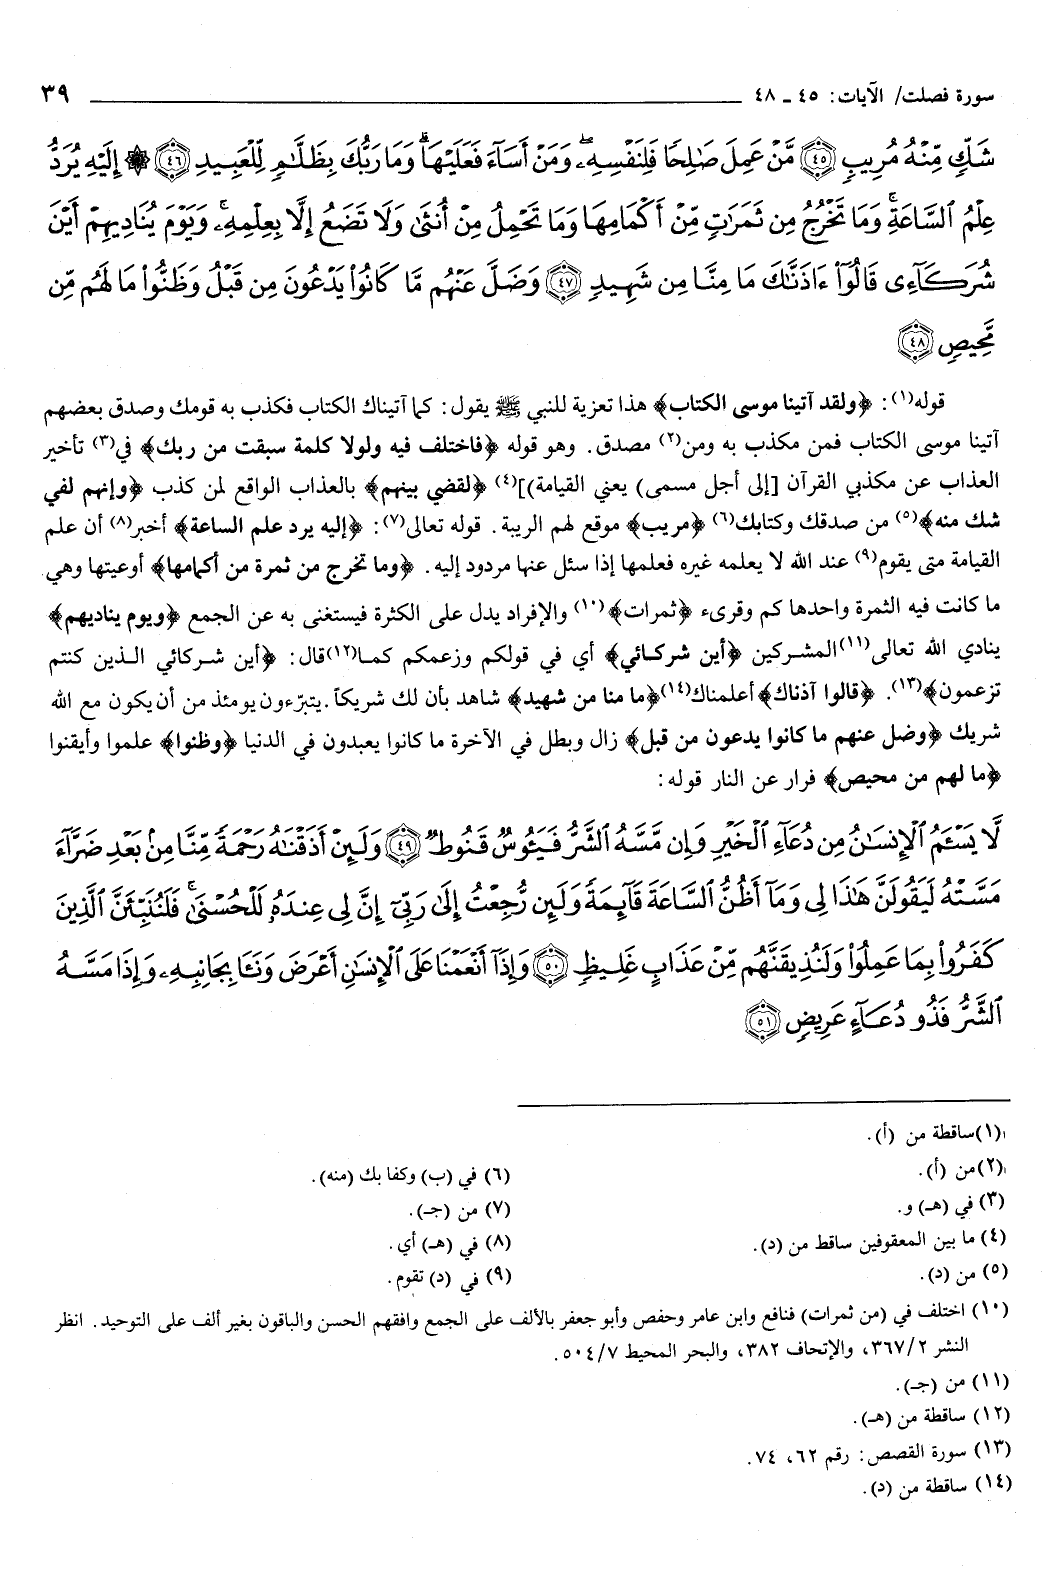 سورة فصلت/ الآيات: ٤٥ ـ ٤٨ ٣٩
شَكٍّ مِّنْهُ مُرِيبٍ ﴿٤٥﴾ مَّنْ عَمِلَ صَالِحًا فَلِنَفْسِهِۦ ۖ وَمَنْ أَسَآءَ فَعَلَيْهَا ۗ وَمَا رَبُّكَ بِظَلَّامٍ لِّلْعَبِيدِ ﴿٤٦﴾ ۞ إِلَيْهِ يُرَدُّ
عِلْمُ ٱلسَّاعَةِ ۚ وَمَا تَخْرُجُ مِن ثَمَرَٰتٍ مِّنْ أَكْمَامِهَا وَمَا تَحْمِلُ مِنْ أُنثَىٰ وَلَا تَضَعُ إِلَّا بِعِلْمِهِۦ ۚ وَيَوْمَ يُنَادِيهِمْ أَيْنَ
شُرَكَآءِى قَالُوٓا۟ ءَاذَنَّٰكَ مَا مِنَّا مِن شَهِيدٍ ﴿٤٧﴾ وَضَلَّ عَنْهُم مَّا كَانُوا۟ يَدْعُونَ مِن قَبْلُ وَظَنُّوا۟ مَا لَهُم مِّن
مَّحِيصٍ ﴿٤٨﴾
قوله(١): ﴿ولقد آتينا موسى الكتاب﴾ هذا تعزية للنبي ﷺ يقول: كما آتيناك الكتاب فكذب به قومك وصدق بعضهم
آتينا موسى الكتاب فمن مكذب به ومن(٢) مصدق. وهو قوله ﴿فاختلف فيه ولولا كلمة سبقت من ربك﴾ في(٣) تأخير
العذاب عن مكذبي القرآن [إلى أجل مسمى) يعني القيامة)](٤) ﴿لقضي بينهم﴾ بالعذاب الواقع لمن كذب ﴿وإنهم لفي
شك منه﴾(٥) من صدقك وكتابك(٦) ﴿مريب﴾ موقع لهم الريبة. قوله تعالى(٧): ﴿إليه يرد علم الساعة﴾ أخبر(٨) أن علم
القيامة متى يقوم(٩) عند الله لا يعلمه غيره فعلمها إذا سئل عنها مردود إليه. ﴿وما تخرج من ثمرة من أكمامها﴾ أوعيتها وهي
ما كانت فيه الثمرة واحدها كم وقرىء ﴿ثمرات﴾(١٠) والإفراد يدل على الكثرة فيستغنى به عن الجمع ﴿ويوم يناديهم﴾
ينادي الله تعالى(١١)المشركين ﴿أين شركائي﴾ أي في قولكم وزعمكم كما(١٢)قال: ﴿أين شركائي الذين كنتم
تزعمون﴾(١٣). ﴿قالوا آذناك﴾ أعلمناك(١٤)﴿ما منا من شهيد﴾ شاهد بأن لك شريكاً. يتبرّءون يومئذ من أن يكون مع الله
شريك ﴿وضل عنهم ما كانوا يدعون من قبل﴾ زال وبطل في الآخرة ما كانوا يعبدون في الدنيا ﴿وظنوا﴾ علموا وأيقنوا
﴿ما لهم من محيص﴾ فرار عن النار قوله:
لَّا يَسْـَٔمُ ٱلْإِنسَٰنُ مِن دُعَآءِ ٱلْخَيْرِ وَإِن مَّسَّهُ ٱلشَّرُّ فَيَـُٔوسٌ قَنُوطٌ ﴿٤٩﴾ وَلَئِنْ أَذَقْنَٰهُ رَحْمَةً مِّنَّا مِنۢ بَعْدِ ضَرَّآءَ
مَسَّتْهُ لَيَقُولَنَّ هَٰذَا لِى وَمَآ أَظُنُّ ٱلسَّاعَةَ قَآئِمَةً وَلَئِن رُّجِعْتُ إِلَىٰ رَبِّىٓ إِنَّ لِى عِندَهُۥ لَلْحُسْنَىٰ ۚ فَلَنُنَبِّئَنَّ ٱلَّذِينَ
كَفَرُوا۟ بِمَا عَمِلُوا۟ وَلَنُذِيقَنَّهُم مِّنْ عَذَابٍ غَلِيظٍ ﴿٥٠﴾ وَإِذَآ أَنْعَمْنَا عَلَى ٱلْإِنسَٰنِ أَعْرَضَ وَنَـَٔا بِجَانِبِهِۦ وَإِذَا مَسَّهُ
ٱلشَّرُّ فَذُو دُعَآءٍ عَرِيضٍ ﴿٥١﴾
(١)ساقطة من (أ).
(٢)من (أ).
(٣) في (هـ) و.
(٤) ما بين المعقوفين ساقط من (د).
(٥) من (د).
(٦) في (ب) وكفا بك (منه).
(٧) من (جـ).
(٨) في (هـ) أي.
(٩) في (د) تقوم.
(١٠) اختلف في (من ثمرات) فنافع وابن عامر وحفص وأبو جعفر بالألف على الجمع وافقهم الحسن والباقون بغير ألف على التوحيد. انظر
النشر ٣٦٧/٢، والإتحاف ٣٨٢، والبحر المحيط ٥٠٤/٧.
(١١) من (جـ).
(١٢) ساقطة من (هـ).
(١٣) سورة القصص: رقم ٦٢، ٧٤.
(١٤) ساقطة من (د).